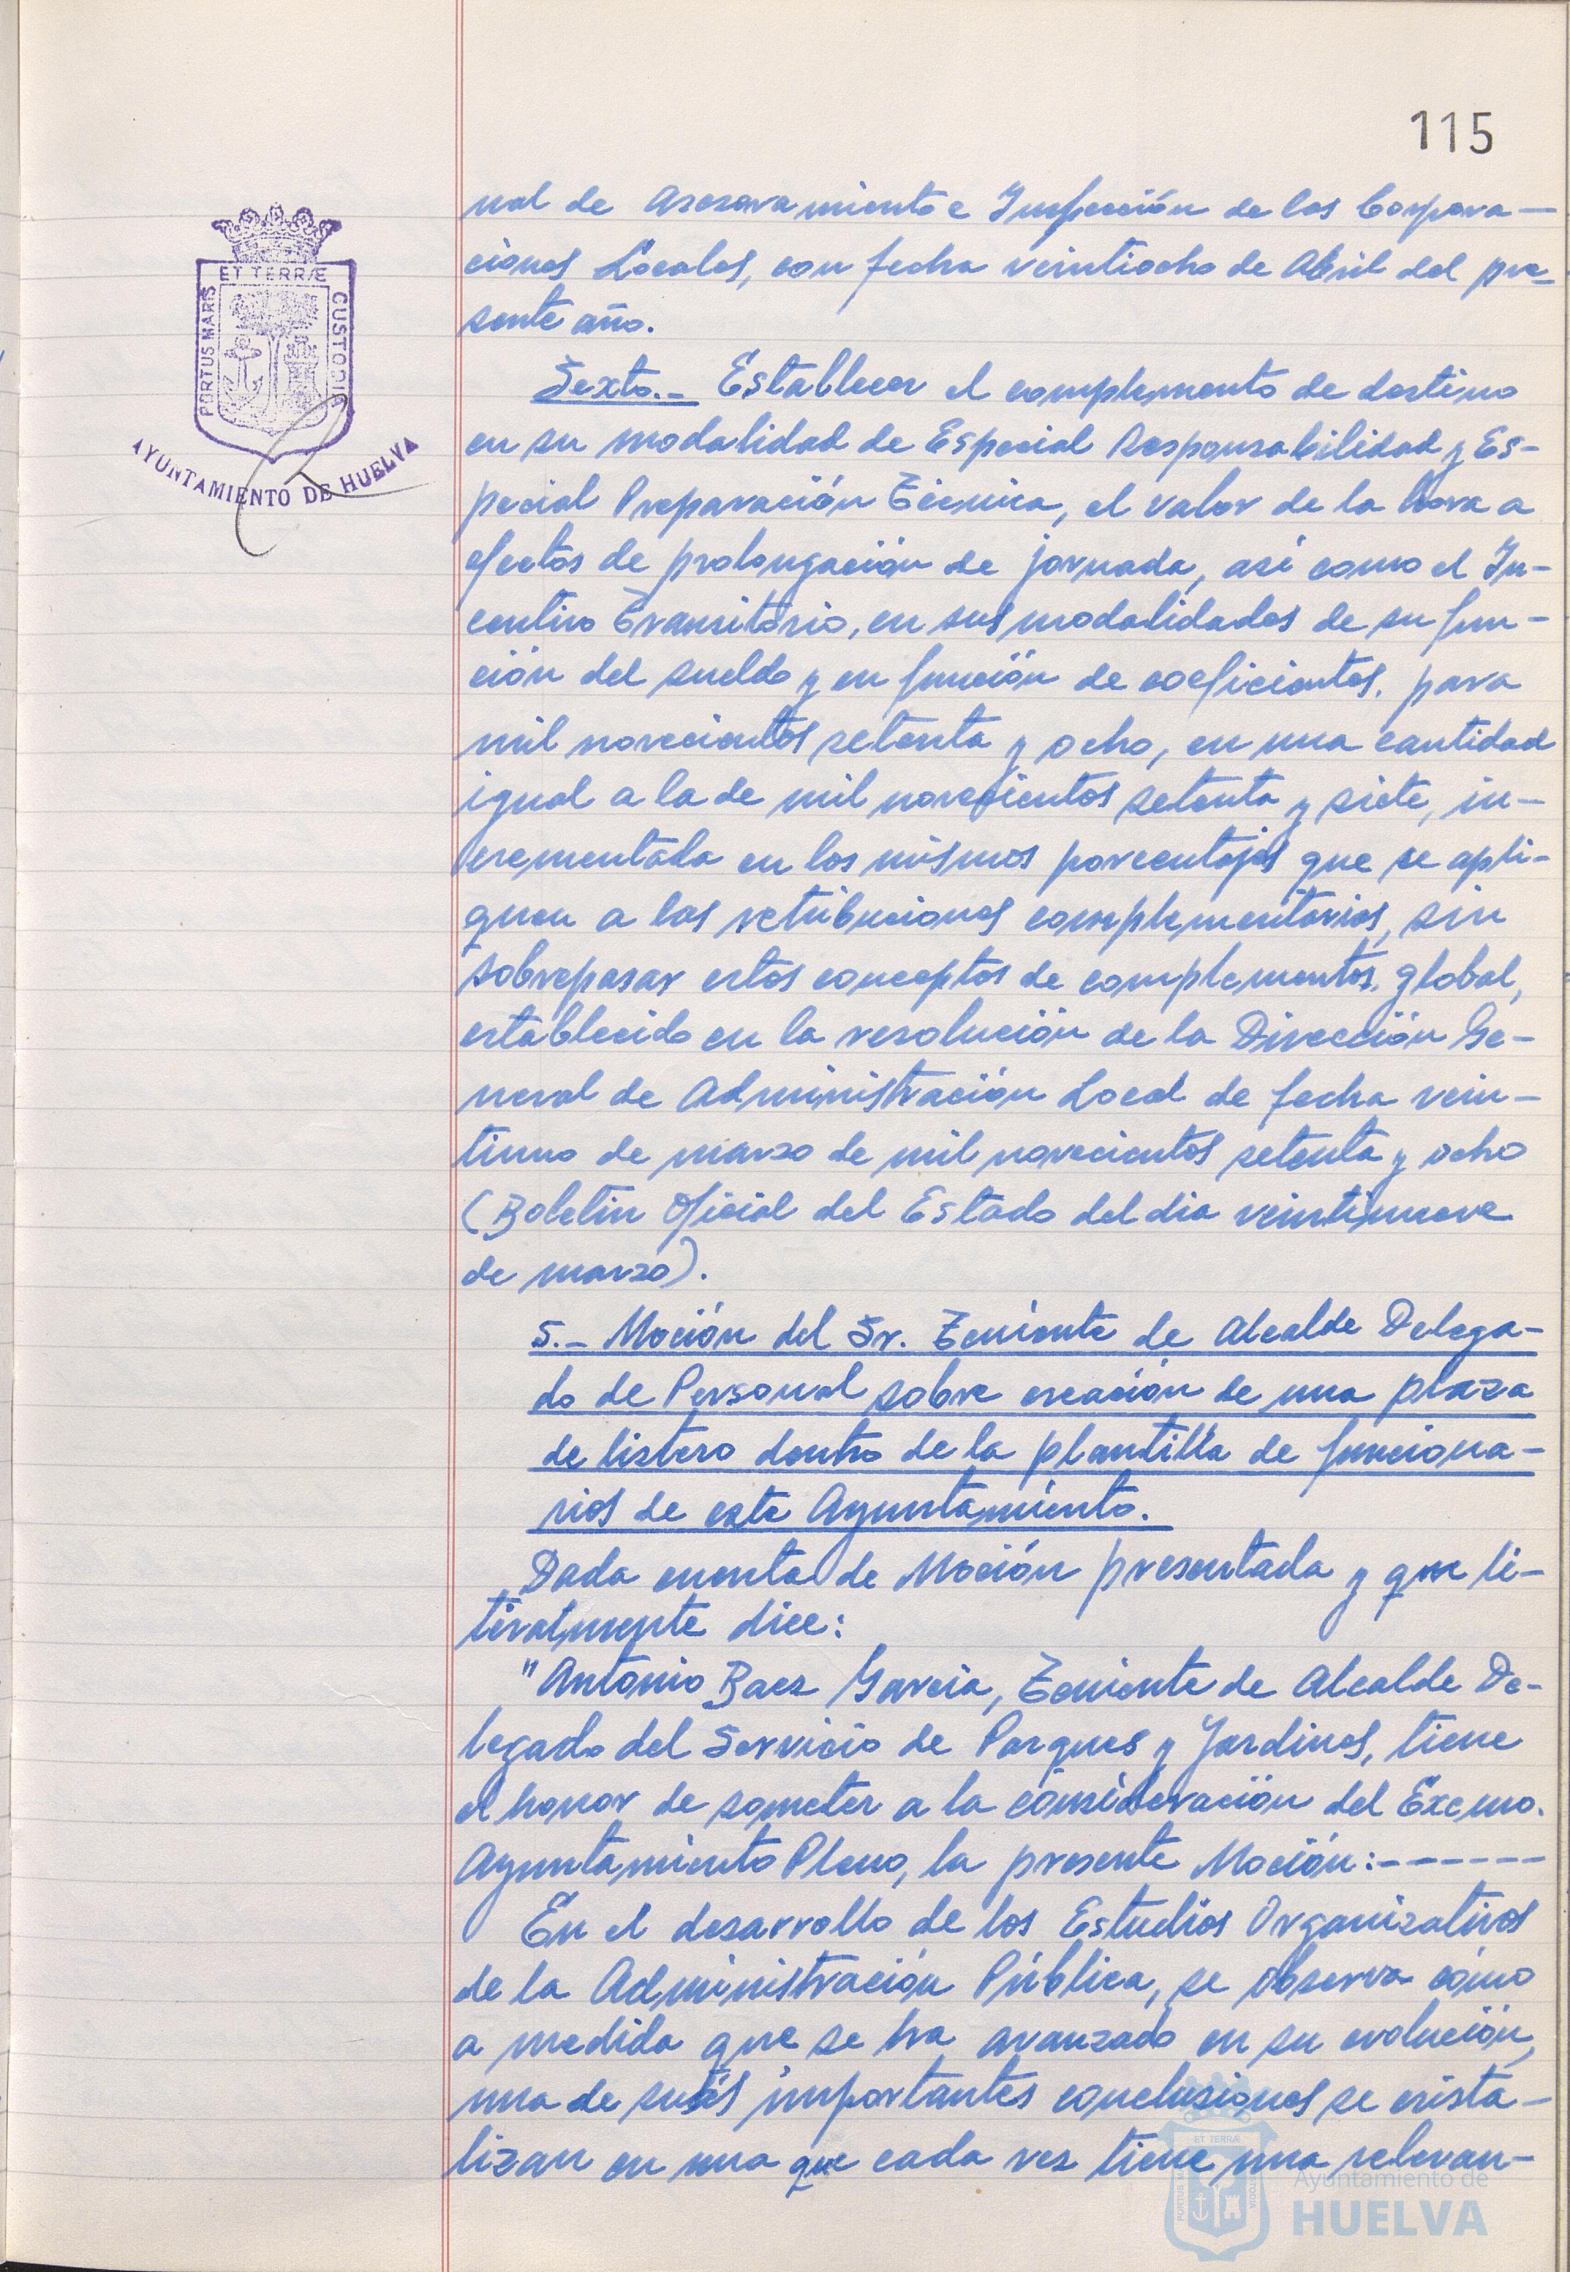 115
nal de Asesoramiento e Inspección de las Corpora-
ciones Locales, con fecha veintiocho de Abril del pre-
sente año.
Sexto.- Establecer el complemento de destino
en su modalidad de Especial Responsabilidad y Es-
pecial Preparación Técnica, el valor de la hora a
efectos de prolongación de jornada, así como el In-
centivo Transitorio, en sus modalidades de su fun-
ción del sueldo y en función de coeficientes, para
mil novecientos setenta y ocho, en una cantidad
igual a la de mil novecientos setenta y siete, in-
crementada en los mismos porcentajes que se apli-
quen a las retribuciones complementarias, sin
sobrepasar estos conceptos de complementos, global,
establecido en la resolución de la Dirección Ge-
neral de Administración Local de fecha vein-
tiuno de marzo de mil novecientos setenta y ocho
(Boletin Oficial del Estado del dia veintinueve
de marzo).
5.- Moción del Sr. Teniente de Alcalde Delega-
do de Personal sobre creación de una plaza
de listero dentro de la plantilla de funciona-
rios de este Ayuntamiento.
Dada cuenta de Moción presentada y que li-
teralmente dice:
"Antonio Baez García, Teniente de Alcalde De-
legado del Servicio de Parques y Jardines, tiene
el honor de someter a la consideración del Excmo.
Ayuntamiento Pleno, la presente Moción:------
En el desarrollo de los Estudios Organizativos
de la Administración Pública, se observa cómo
a medida que se ha avanzado en su evolución,
una de sus importantes conclusiones se crista-
lizan en una que cada vez tiene una relevan-
ET TERRÆ
PORTUS MARIS
CUSTODIA
AYUNTAMIENTO DE HUELVA
Ayuntamiento de
HUELVA